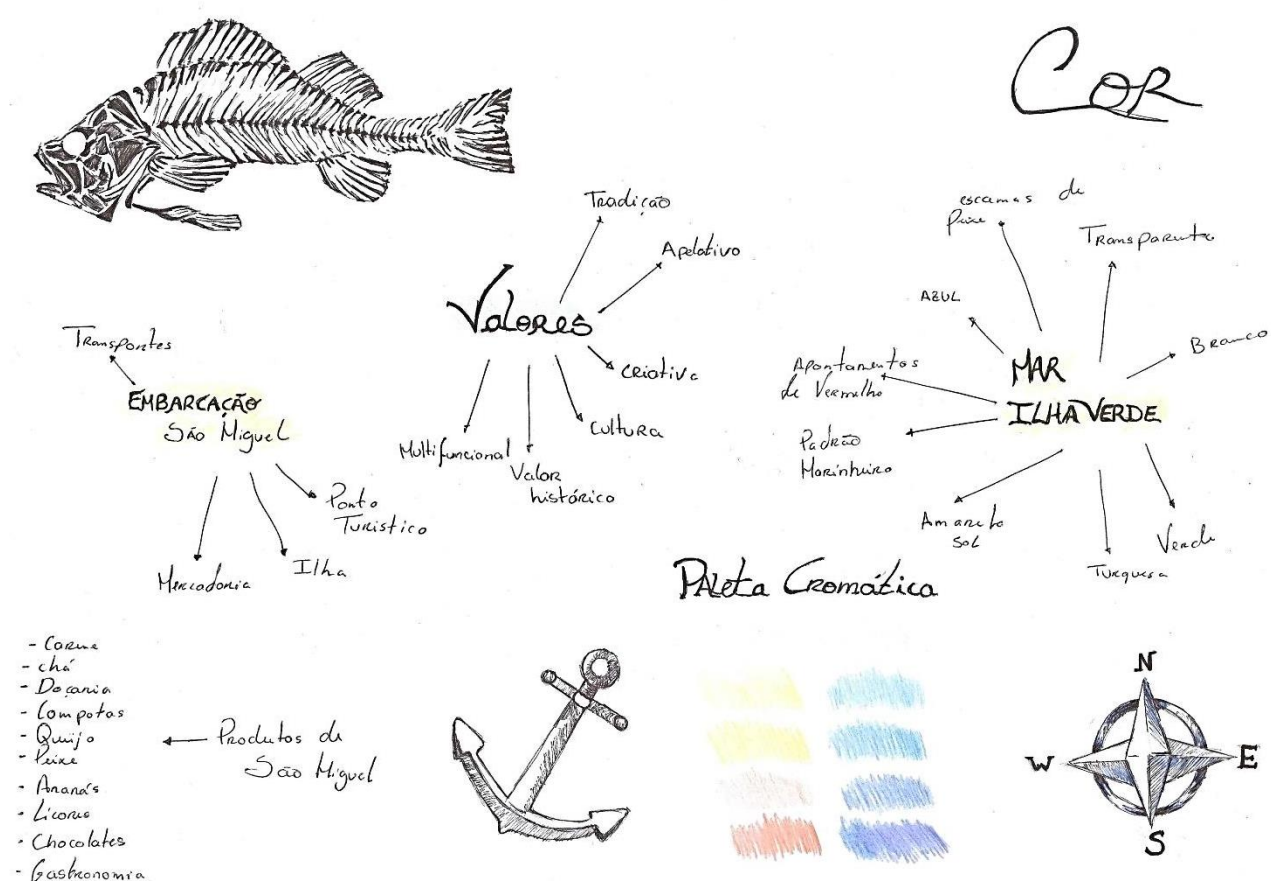 Cor
Tradição
Apelativo
Valores
criativa
Cultura
Valor
histórico
Multifuncional
Transportes
EMBARCAÇÃO
São Miguel
Ponto
Turistico
Ilha
Mercadoria
escamas de
Peixe
Transparente
AZUL
Branco
MAR
ILHA VERDE
Apontamentos
de Vermelho
Padrão
Marinheiro
Amarelo
Sol
Turquesa
Verde
Paleta Cromática
- Carne
- chá
- Doçaria
- Compotas
- Quijo
- Peixe
- Ananás
- Licores
- Chocolates
- Gastronomia
Produtos de
São Miguel
N
W
E
S